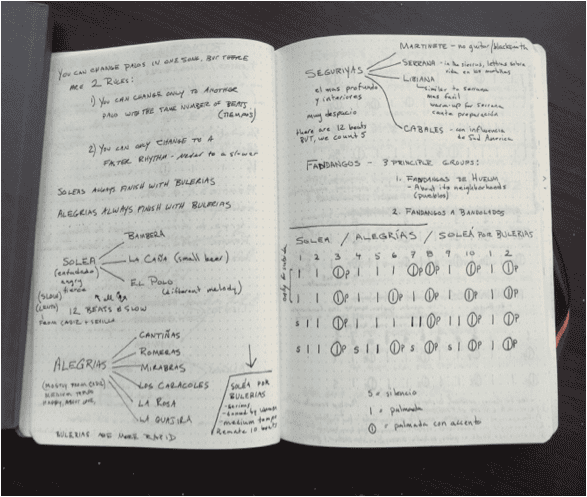 YOU CAN CHANGE PALOS IN ONE SONG, BUT THERE
ARE 2 RULES:
1) YOU CAN CHANGE ONLY TO ANOTHER
PALO WITH THE SAME NUMBER OF BEATS
(TIEMPOS)
2) YOU CAN ONLY CHANGE TO A
FASTER RHYTHM - NEVER TO A SLOWER
SOLEAS ALWAYS FINISH WITH BULERIAS
ALEGRIAS ALWAYS FINISH WITH BULERIAS
SOLEA
(enfadado)
angry
fierce
(SLOW)
(LENTO)
BAMBERA
LA CAÑA (small beer)
EL POLO
(different melody)
all
12 BEATS & SLOW
FROM CADIZ & SEVILLA
ALEGRIAS
(MOSTLY FROM CADIZ)
MEDIUM TEMPO
HAPPY, ABOUT LOVE
CANTIÑAS
ROMERAS
MIRABRAS
LOS CARACOLES
LA ROSA
LA GUAJIRA
BULERIAS ARE MORE RAPID
SOLEÁ POR
BULERIAS
- serious
- danced by women
- medium tempo
Remate 10 beats
SEGUIRIYAS
el mas profundo
y interiores
muy despacio
there are 12 beats
BUT, we count 5
MARTINETE - no guitar/blacksmith
SERRANA - in the sierras, lettras sobre
vida en las montañas
LIBIANA
similar to serrana
mas facil
warm-up for serrana
cante preparación
CABALES - con influencia
de Sud America
FANDANGOS - 3 PRINCIPLE GROUPS:
1. FANDANGOS DE HUELVA
- About its neighborhoods
(pueblos)
2. FANDANGOS A BANDOLAOS
SOLEA / ALEGRÍAS / SOLEÁ POR BULERIAS
1 2 3 4 5 6 7 8 9 10 1 2
s = silencio
1 = palmada
① = palmada con accento